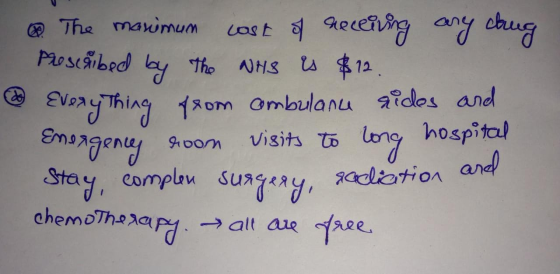 ⊛ The maximum cost of receiving any drug
prescribed by the NHS is $12.
⊛ Everything from ambulance rides and
Emergency room visits to long hospital
stay, complex surgery, radiation and
chemotherapy. → all are free.